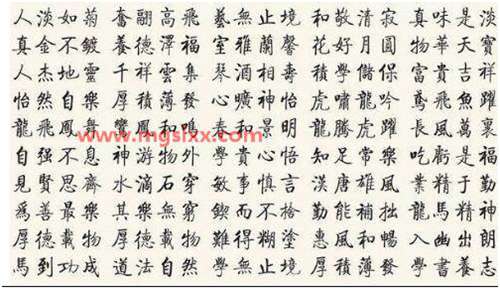 人淡如菊 奮翮高飛 藝無止境 和敬清寂 真味是淡
真金不鍍 養德澤福 室雅蘭馨 花好月圓 物華天寶
人杰地靈 千祥雲集 琴酒相壽 學儲保 富貴吉祥
怡然自樂 厚積薄發 心曠神怡 虎嘯龍吟 鳶飛魚躍
龍飛鳳舞 和鳴 春和景明 龍騰虎躍 長風萬裏
自强不息 神游物外 學貴心悟 知足常樂 吃虧是福
見賢思齊 水滴石穿 敏事慎言 漢唐雄風 業精于勤
爲善最樂 其樂無窮 鍥而不捨 勤能補拙 龍馬精神
厚德載物 厚德載物 難得糊塗 惠風和暢 入幽出朗
馬到功成 道法自然 學無止境 厚積薄發 學書養志
www.mgslxx.com